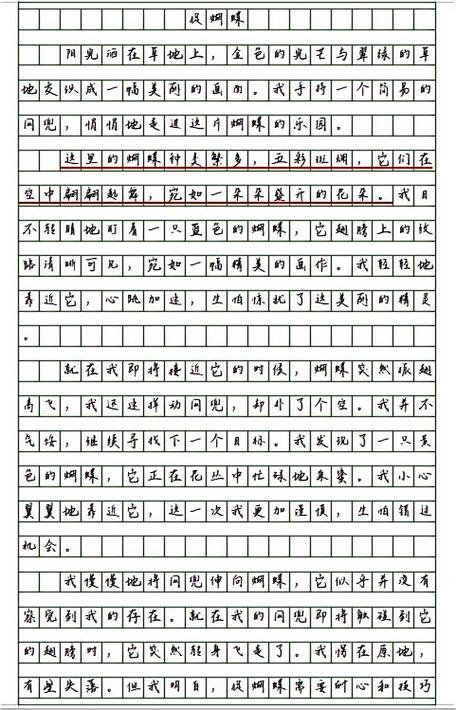 捉蝴蝶
阳光洒在草地上，金色的光芒与翠绿的草
地交织成一幅美丽的画面。我手持一个简易的
网兜，悄悄地走进这片蝴蝶的乐园。
这里的蝴蝶种类繁多，五彩斑斓，它们在
空中翩翩起舞，宛如一朵朵盛开的花朵。我目
不转睛地盯着一只蓝色的蝴蝶，它翅膀上的纹
路清晰可见，宛如一幅精美的画作。我轻轻地
靠近它，心跳加速，生怕惊扰了这美丽的精灵
。
就在我即将接近它的时候，蝴蝶突然振翅
高飞，我迅速挥动网兜，却扑了个空。我并不
气馁，继续寻找下一个目标。我发现了一只黄
色的蝴蝶，它正在花丛中忙碌地采蜜。我小心
翼翼地靠近它，这一次我更加谨慎，生怕错过
机会。
我慢慢地将网兜伸向蝴蝶，它似乎并没有
察觉到我的存在。就在我的网兜即将触碰到它
的翅膀时，它突然转身飞走了。我愣在原地，
有些失落。但我明白，捉蝴蝶需要耐心和技巧